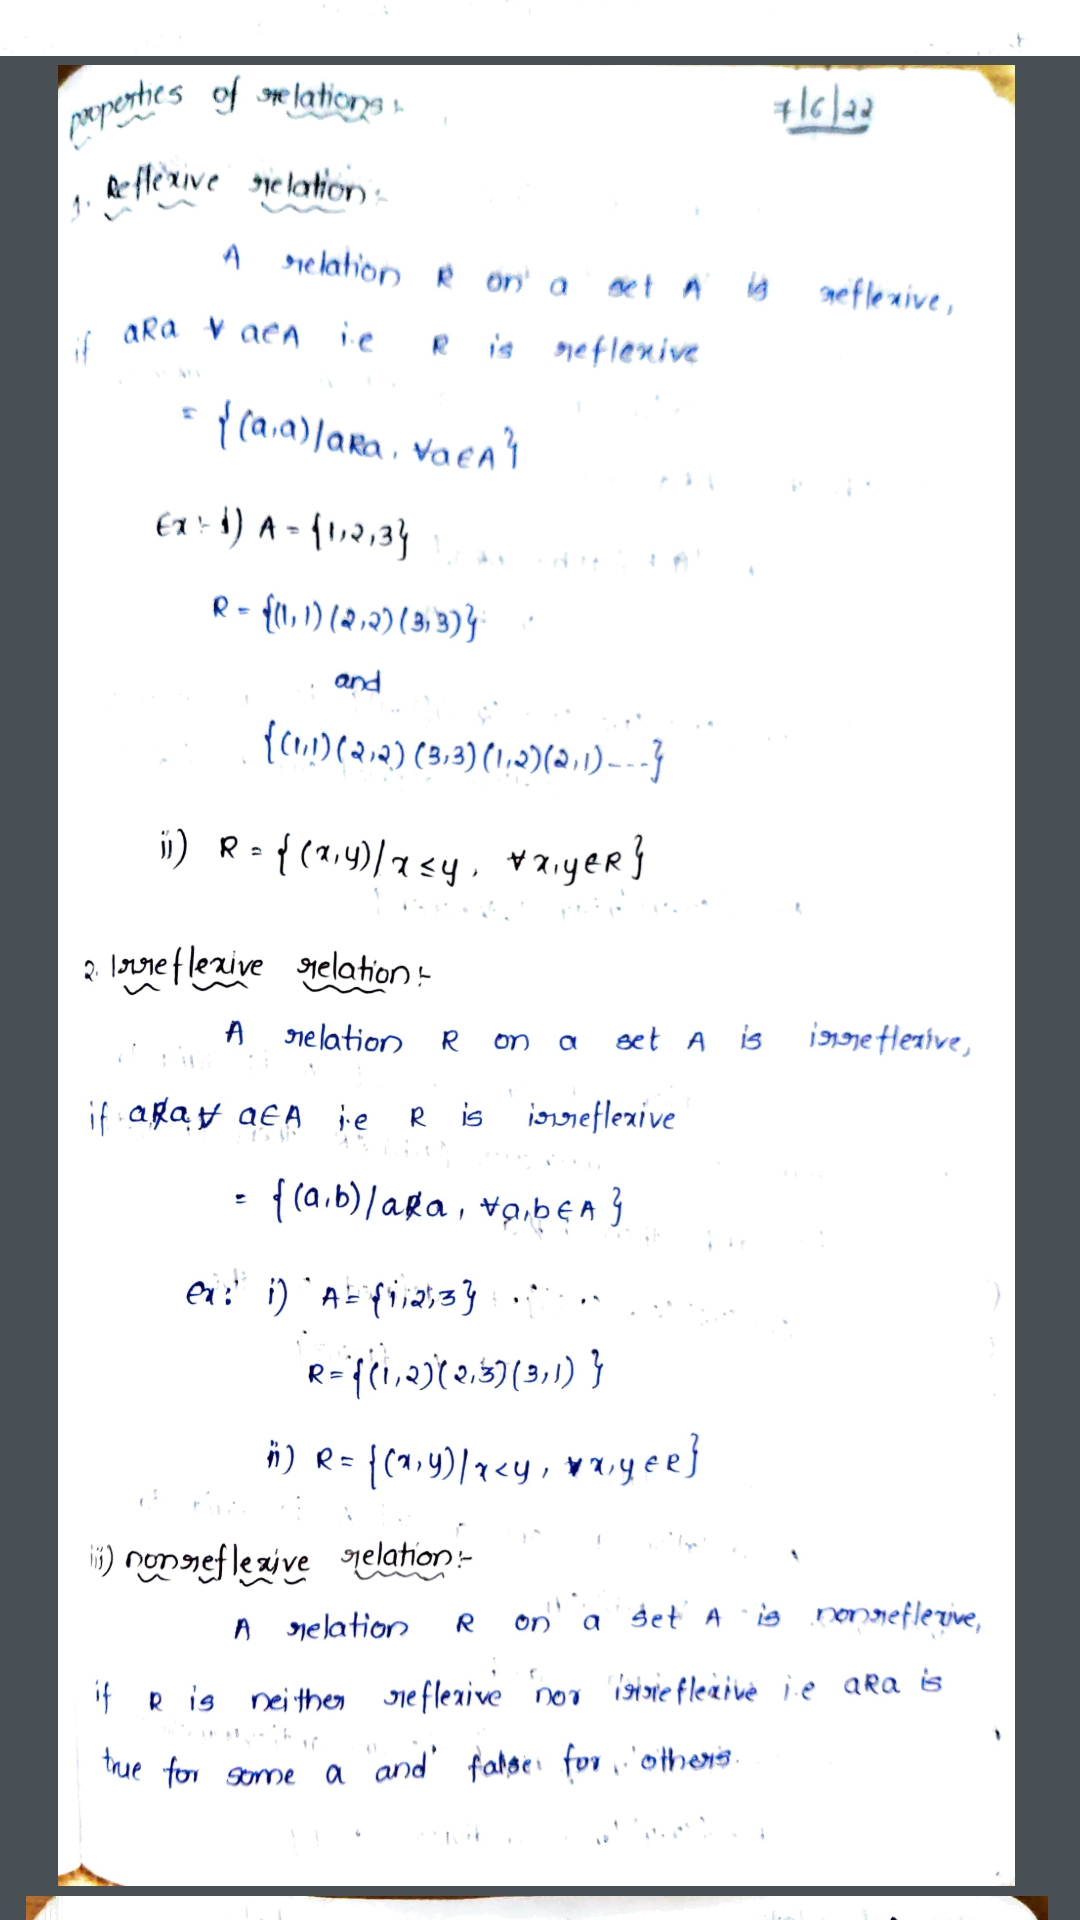 properties of relations :-
7/6/22
1. Reflexive relation :-
A relation R on a set A is reflexive,
if aRa ∀ a∈A i.e R is reflexive
= {(a,a)/aRa, ∀a∈A}
Ex :- i) A = {1,2,3}
R = {(1,1)(2,2)(3,3)}
and
{(1,1)(2,2)(3,3)(1,2)(2,1)----}
ii) R = {(x,y)/x≤y, ∀x,y∈R}
2. Irreflexive relation :-
A relation R on a set A is irreflexive,
if aR̸a ∀ a∈A i.e R is irreflexive
= {(a,b)/aR̸a, ∀a,b∈A}
ex: i) A = {1,2,3}
R = {(1,2)(2,3)(3,1)}
ii) R = {(x,y)/x<y, ∀x,y∈R}
iii) nonreflexive relation :-
A relation R on a set A is nonreflexive,
if R is neither reflexive nor irreflexive i.e aRa is
true for some a and false for others.